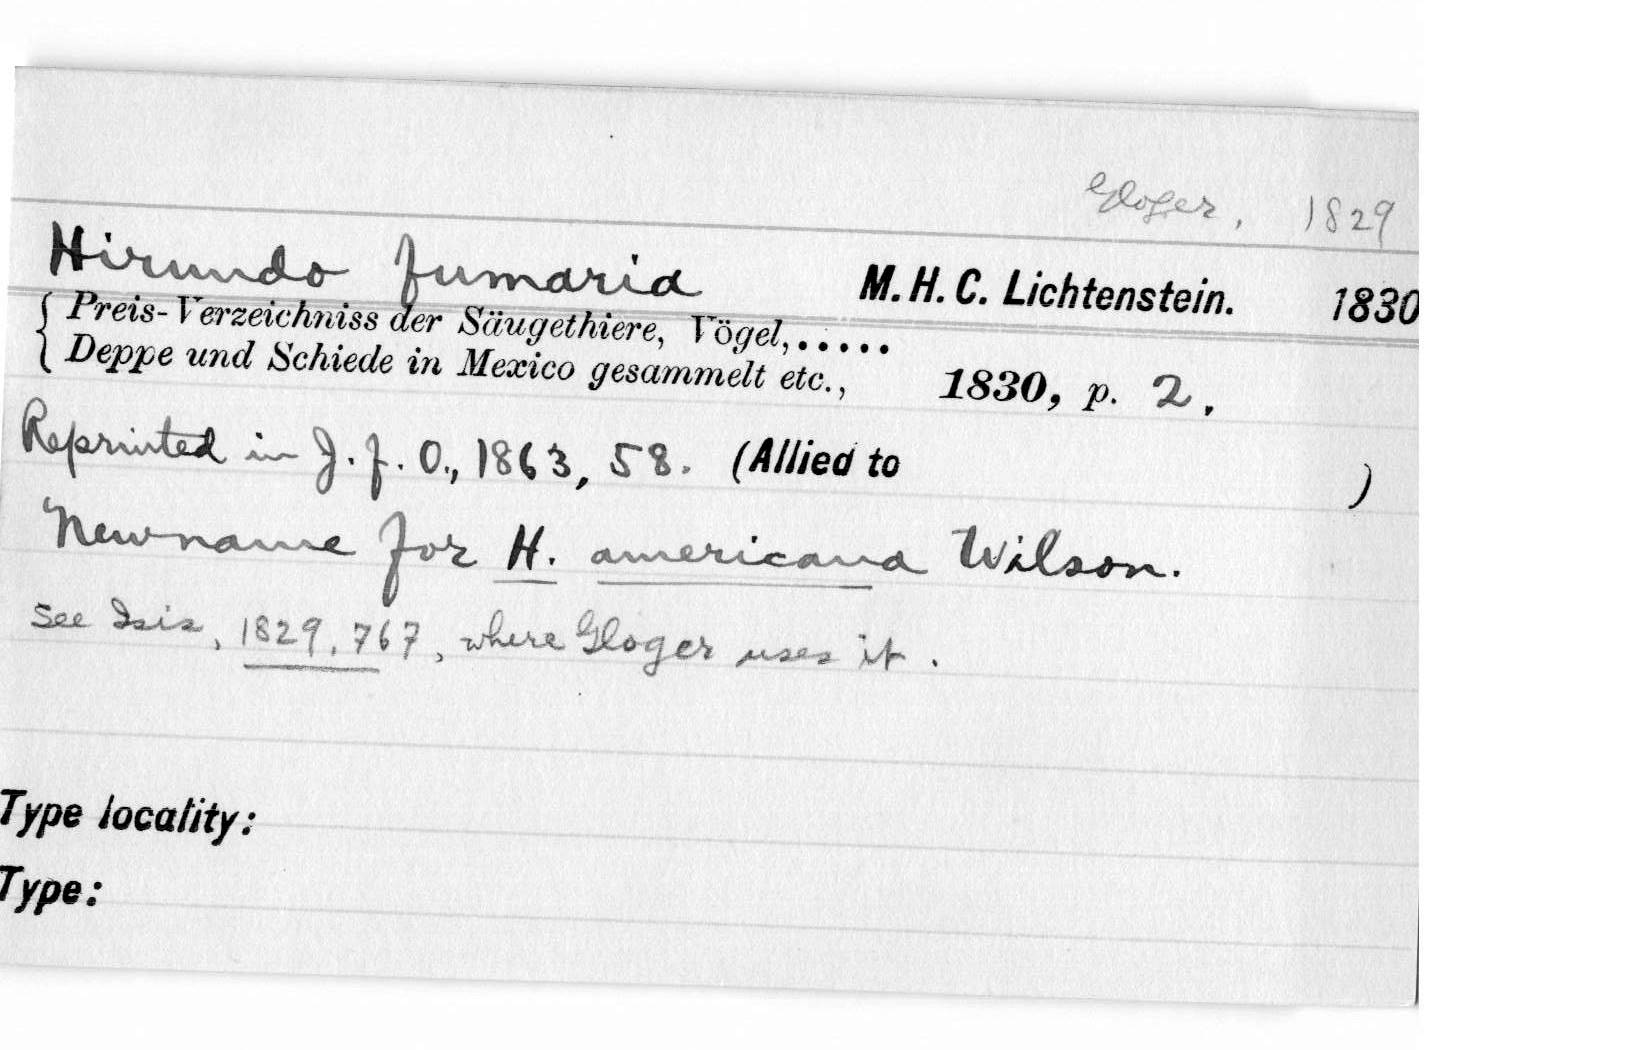 Gloger, 1829
Hirundo fumaria M. H. C. Lichtenstein. 1830
{ Preis-Verzeichniss der Säugethiere, Vögel,.....
{ Deppe und Schiede in Mexico gesammelt etc., 1830, p. 2.
Reprinted in J. f. O., 1863, 58. (Allied to )
New name for H. americana Wilson.
See Isis, 1829, 767, where Gloger uses it.
Type locality:
Type: